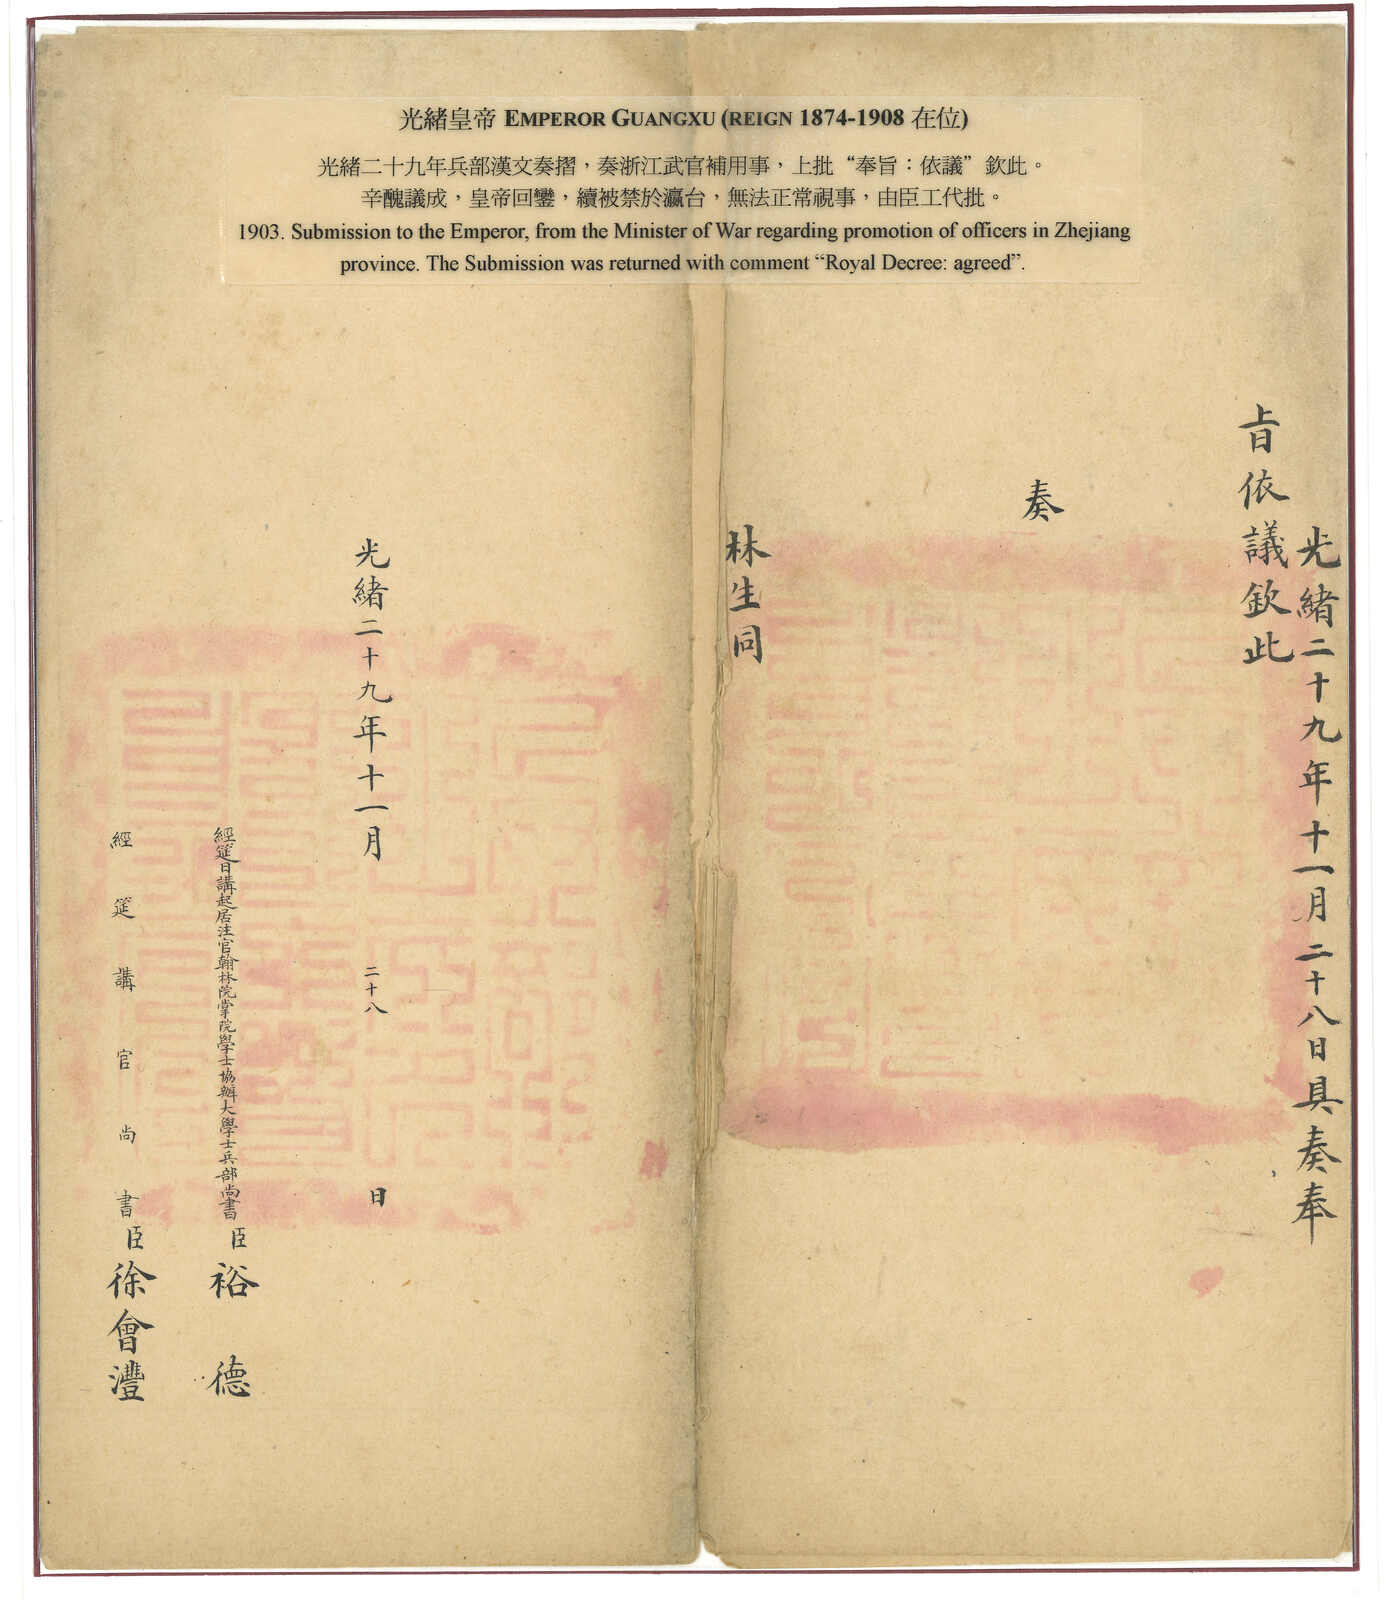 光緒皇帝 EMPEROR GUANGXU (REIGN 1874-1908 在位)
光緒二十九年兵部漢文奏摺，奏浙江武官補用事，上批“奉旨：依議”欽此。
辛醜議成，皇帝回鑾，續被禁於瀛台，無法正常視事，由臣工代批。
1903. Submission to the Emperor, from the Minister of War regarding promotion of officers in Zhejiang
province. The Submission was returned with comment “Royal Decree: agreed”.
光緒二十九年十一月二十八日具奏奉
旨依議欽此
奏
林生同
光緒二十九年十一月二十八日
經筵日講起居注官翰林院掌院學士協辦大學士兵部尚書臣裕德
經筵講官尚書臣徐會灃